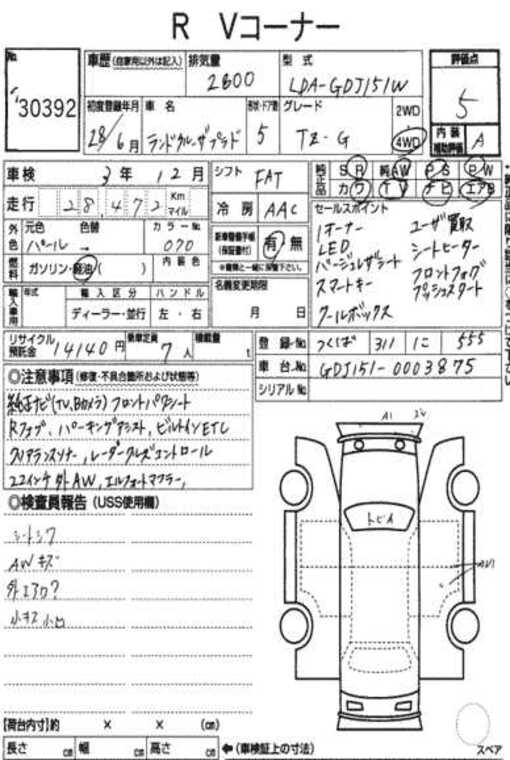 R Vコーナー
No.
30392
車歴(自家用以外は記入)
排気量
2800
型式
LDA-GDJ151W
評価点
5
初度登録年月
28/6月
車名
ランドクルーザプラド
形状・ドア数
5
グレード
TZ-G
2WD
4WD
内装補助評価
A
車検
3年12月
シフト
FAT
純正品
SR 純AW PS PW
カワ TV ナビ エアB
走行
28,472
Km
マイル
冷房
AAC
セールスポイント
1オーナー
ユーザ買取
LED
シートヒーター
ベージュレザーシート
フロントフォグ
スマートキー
プッシュスタート
クールボックス
外色
元色
色替
カラーNo
パール →
070
新車整備手帳
(保証書付)
有・無
※書類と一緒に保管下さい。
燃料
ガソリン・軽油( )
内装色
名義変更期限
月 日
輸入車用
年式
輸入区分
ハンドル
ディーラー・並行
左・右
リサイクル預託金
14140円
乗車定員
7人
積載量
t
登録No.
つくば 311 に 555
車台No.
GDJ151-0003875
シリアルNo.
◎注意事項(修復・不具合箇所および状態等)
純正ナビ(TV,Bカメラ)フロントパワシート
Rフォグ、パーキングアシスト,ビルトインETC
クリアランスソナー,レーダークルーズコントロール
22インチ外AW,エルフォードマフラー,
◎検査員報告(USS使用欄)
シートシワ
AWキズ
外エアロ?
小キズ小凹
A1
トビA
【荷台内寸】約 × × (cm)
長さ cm 幅 cm 高さ cm
←(車検証上の寸法)
スペア